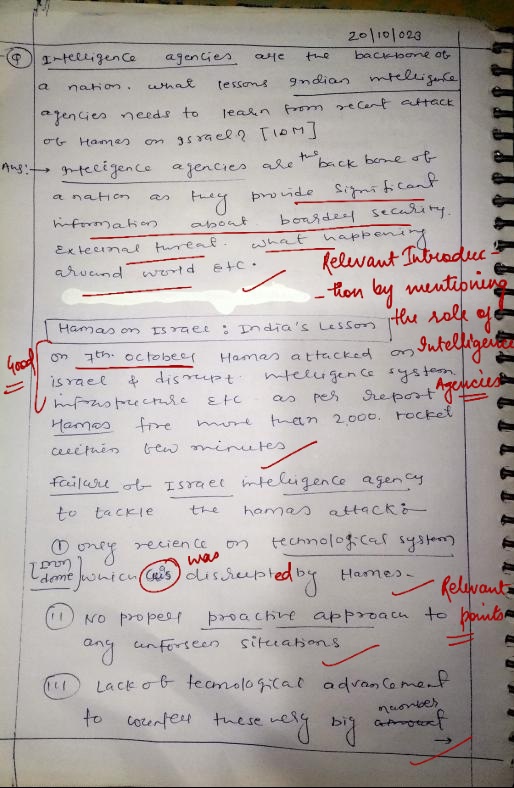 20/10/023
Q Intelligence agencies are the backbone of
a nation. what lessons Indian intelligence
agencies needs to learn from recent attack
of Hamas on Israel? [10M]
Ans:→ Intelligence agencies are the back bone of
a nation as they provide significant
information about boarder security.
External threat. what happening
around world etc.
Relevant Introduc-
-tion by mentioning
the role of
Intelligence
Agencies
Hamas on Israel : India's Lesson
Good
on 7th october Hamas attacked on
israel & disrupt intelligence system
infrastructure etc as per report
Hamas fire more than 2,000. rocket
within few minutes
Failure of Israel intelligence agency
to tackle the hamas attack:-
(i) only relience on technological system
[Iron dome] which is was disrupted by Hamas-
Relevant
points
(ii) No proper proactive approach to
any unforseen situations
(iii) Lack of tecnological advancement
to counter these very big number of
→